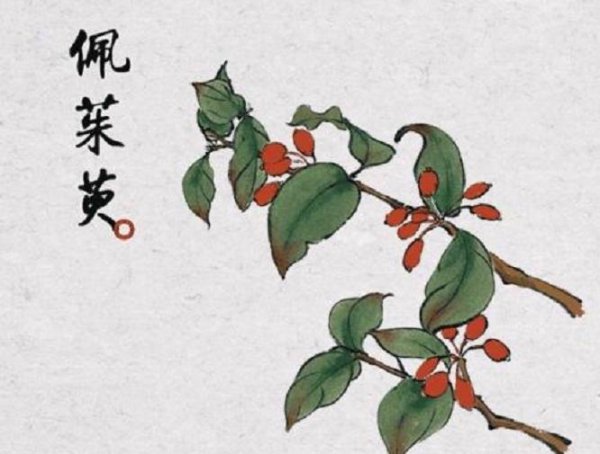 佩茱萸